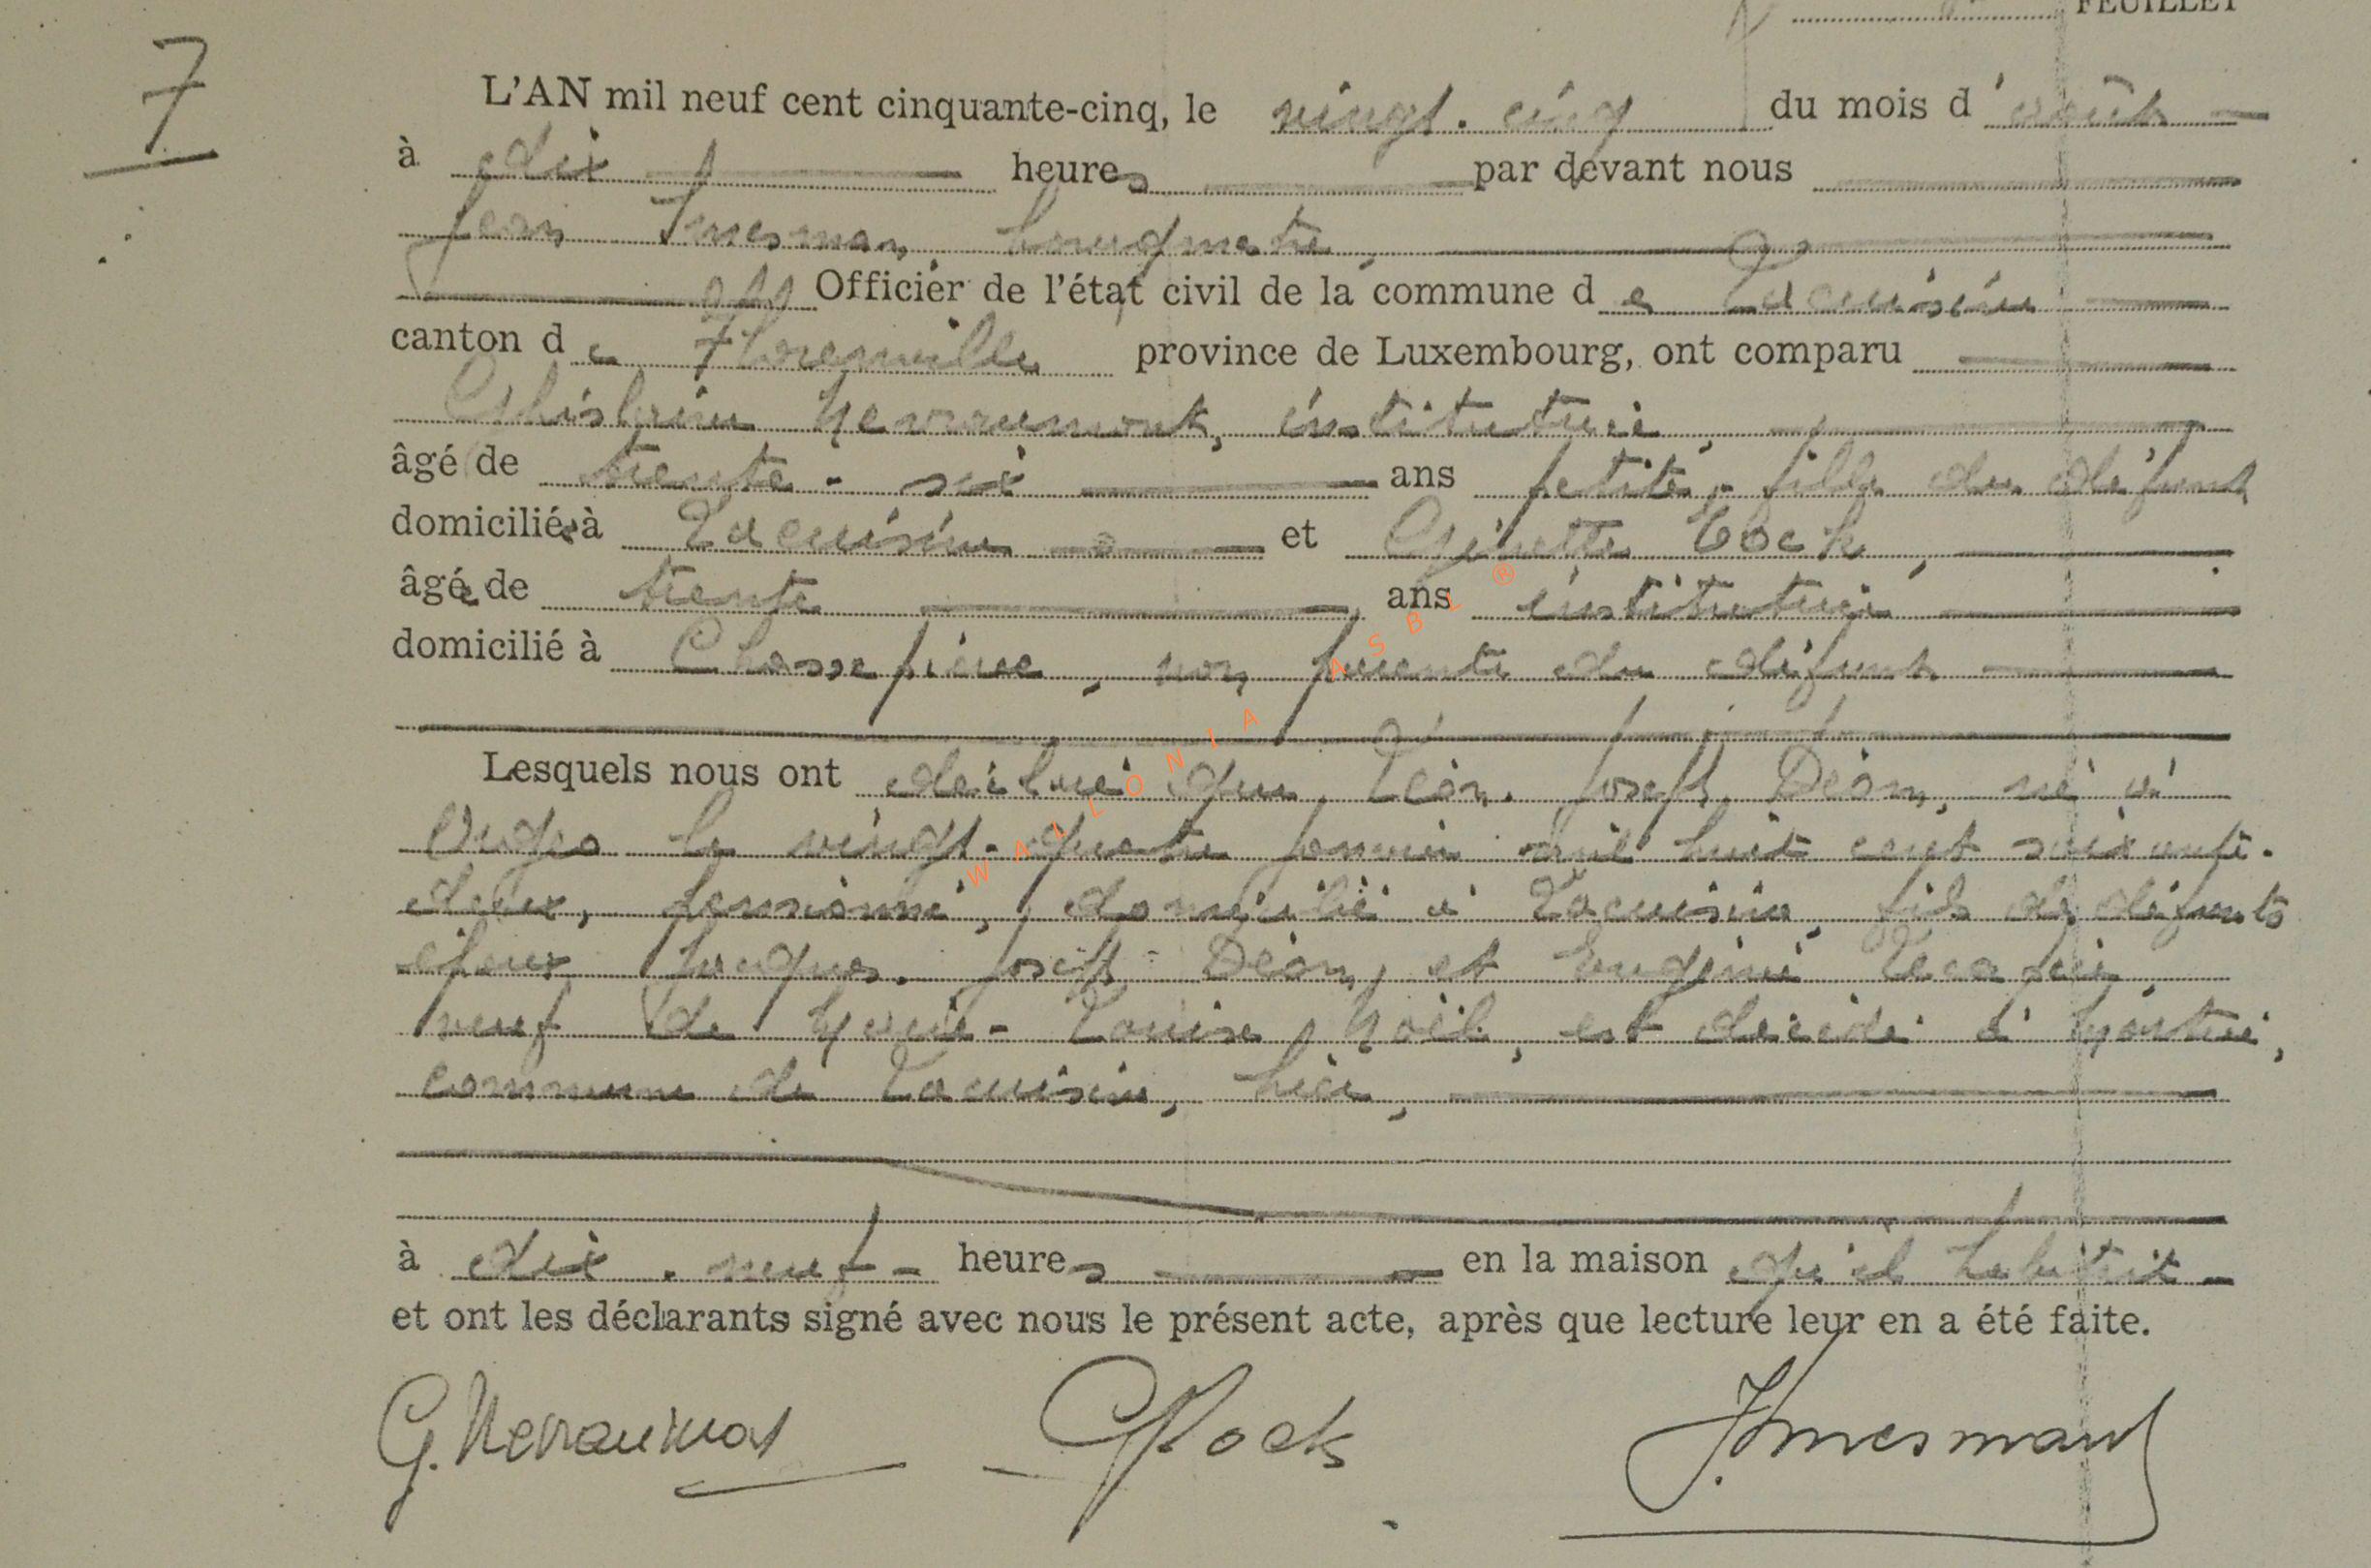 FEUILLET
7
L'AN mil neuf cent cinquante-cinq, le vingt-cinq du mois d'août
à dix heures par devant nous
Jean bourgmestre,
Officier de l'état civil de la commune de Lacuisine
canton de Florenville province de Luxembourg, ont comparu
Ghislaine Nevraumont, institutrice,
âgé de trente-six ans petite-fille du défunt
domiciliée à Lacuisine et Ginette Bock,
âgée de trente ans institutrice
domicilié à Chassepierre, non parente du défunt
Lesquels nous ont déclaré que Léon-Joseph Déom, né à
le vingt-quatre janvier mil huit cent soixante-
deux, pensionné, domicilié à Lacuisine, fils de défunts
époux Jacques-Joseph Déom, et Eugénie
veuf de Marie-Louise Noël, est décédé à Martué,
commune de Lacuisine, hier,
à dix-neuf heures en la maison qu'il habitait
et ont les déclarants signé avec nous le présent acte, après que lecture leur en a été faite.
G. Nevraumont GBock
WALLONIA ASBL ®